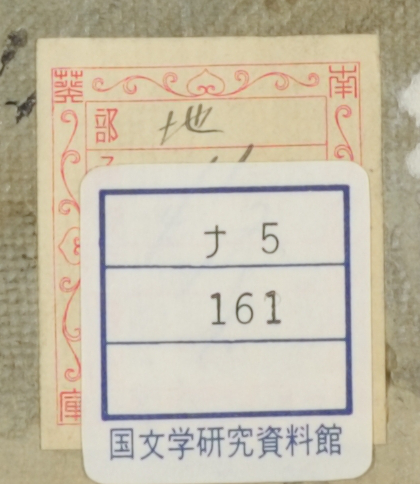 南葵
庫
部 地
ナ 5
161
国文学研究資料館